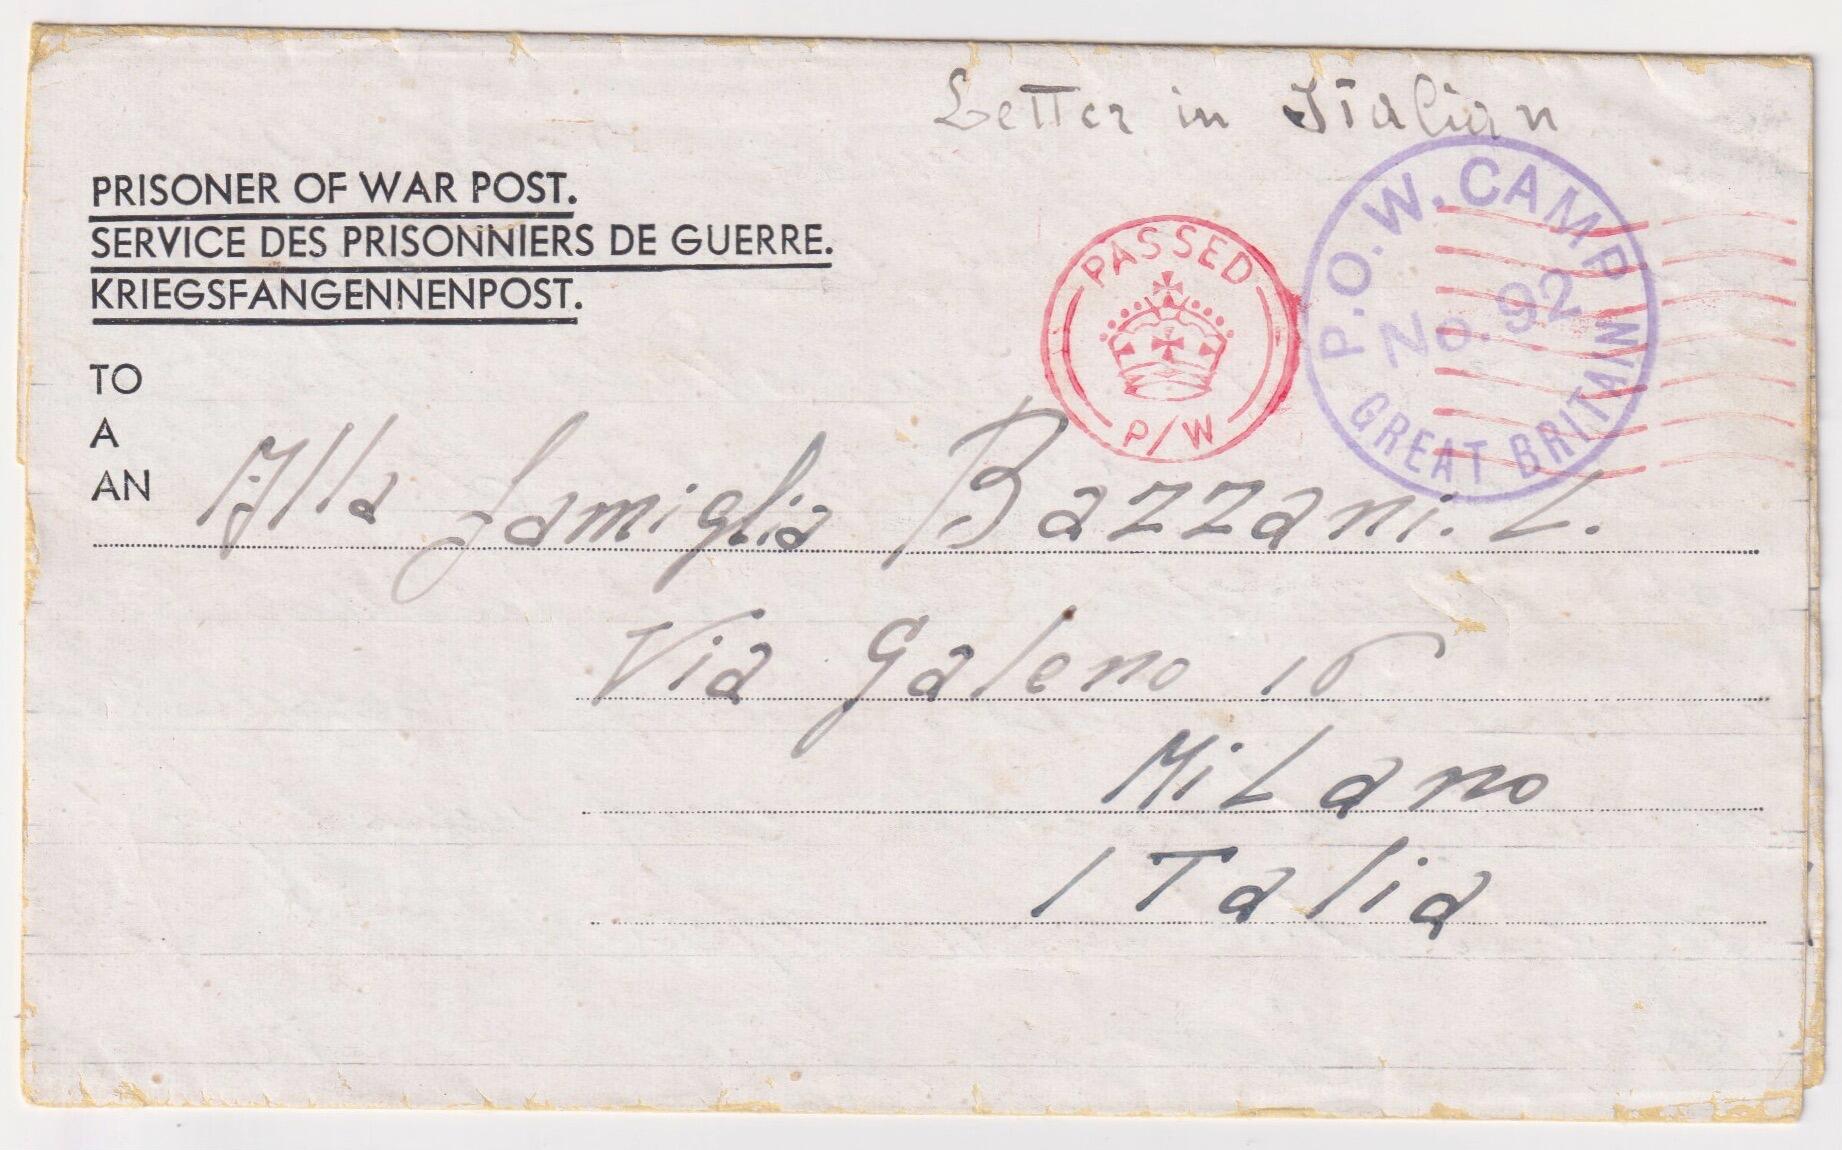 Letter in Italian
PRISONER OF WAR POST.
SERVICE DES PRISONNIERS DE GUERRE.
KRIEGSFANGENNENPOST.
PASSED
P/W
P.O.W. CAMP
No. 92
GREAT BRITAIN
TO
A
AN
Alla famiglia Bazzani. L.
Via Galeno 16
Milano
ITalia